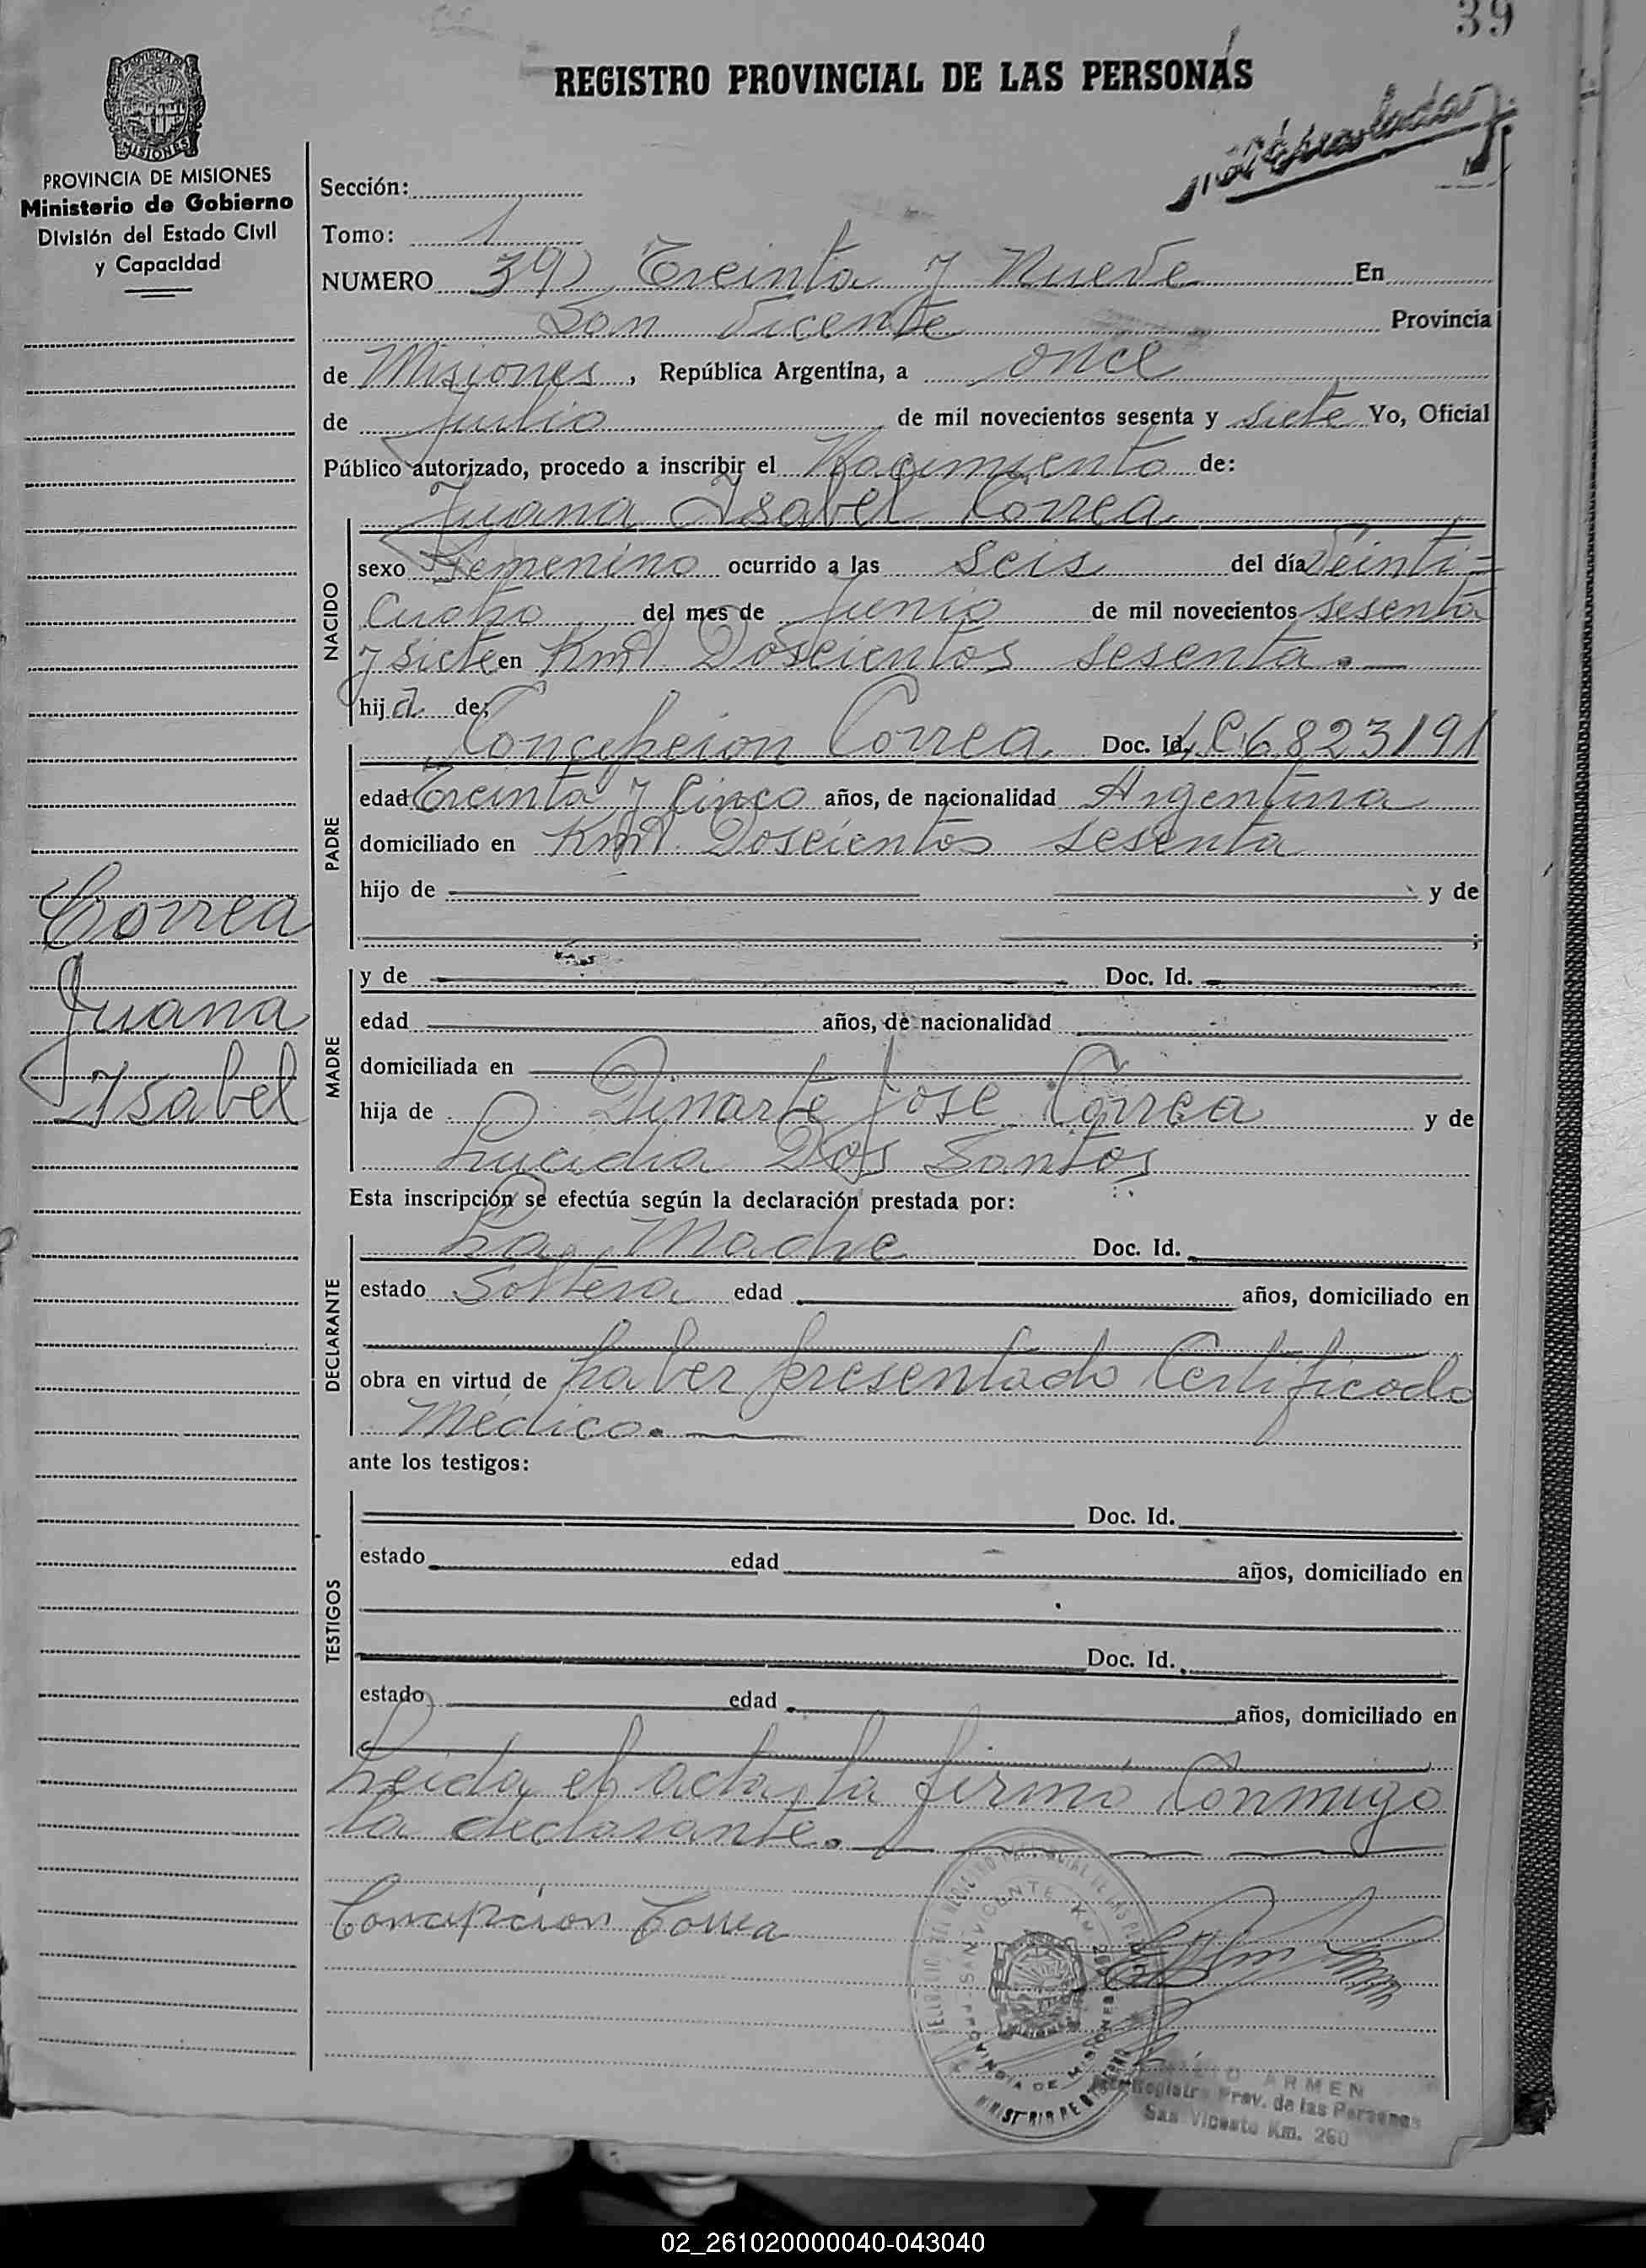 39
REGISTRO PROVINCIAL DE LAS PERSONAS
MISIONES
PROVINCIA DE MISIONES
Ministerio de Gobierno
División del Estado Civil
y Capacidad
Sección:
Tomo: 1
NUMERO 39) Treinta y Nueve En
San Vicente Provincia
de Misiones, República Argentina, a once
de Julio de mil novecientos sesenta y siete Yo, Oficial
Público autorizado, procedo a inscribir el Nacimiento de:
Juana Isabel Correa
NACIDO
sexo Femenino ocurrido a las seis del día Veinti-
Cuatro del mes de Junio de mil novecientos sesenta
y siete en Km. Doscientos sesenta.
hija de:
PADRE
Concepcion Correa Doc. Id. L.C. 6823191
edad Treinta y Cinco años, de nacionalidad Argentina
domiciliado en Km. Doscientos sesenta
hijo de y de
;
Correa
Juana
Ysabel
MADRE
y de Doc. Id.
edad años, de nacionalidad
domiciliada en
hija de Dinarte Jose Correa y de
Dos Santos
Esta inscripción se efectúa según la declaración prestada por:
DECLARANTE
La Madre Doc. Id.
estado Soltera edad años, domiciliado en
obra en virtud de haber presentado Certificado
Médico.
ante los testigos:
TESTIGOS
Doc. Id.
estado edad años, domiciliado en
Doc. Id.
estado edad años, domiciliado en
Leida el acta, la firmó Conmigo
la declarante.
Concepcion Correa
SAN VICENTE
PROVINCIA DE MISIONES
ARMEN
Registro Prov. de las Personas
San Vicente Km. 260
02_261020000040-043040